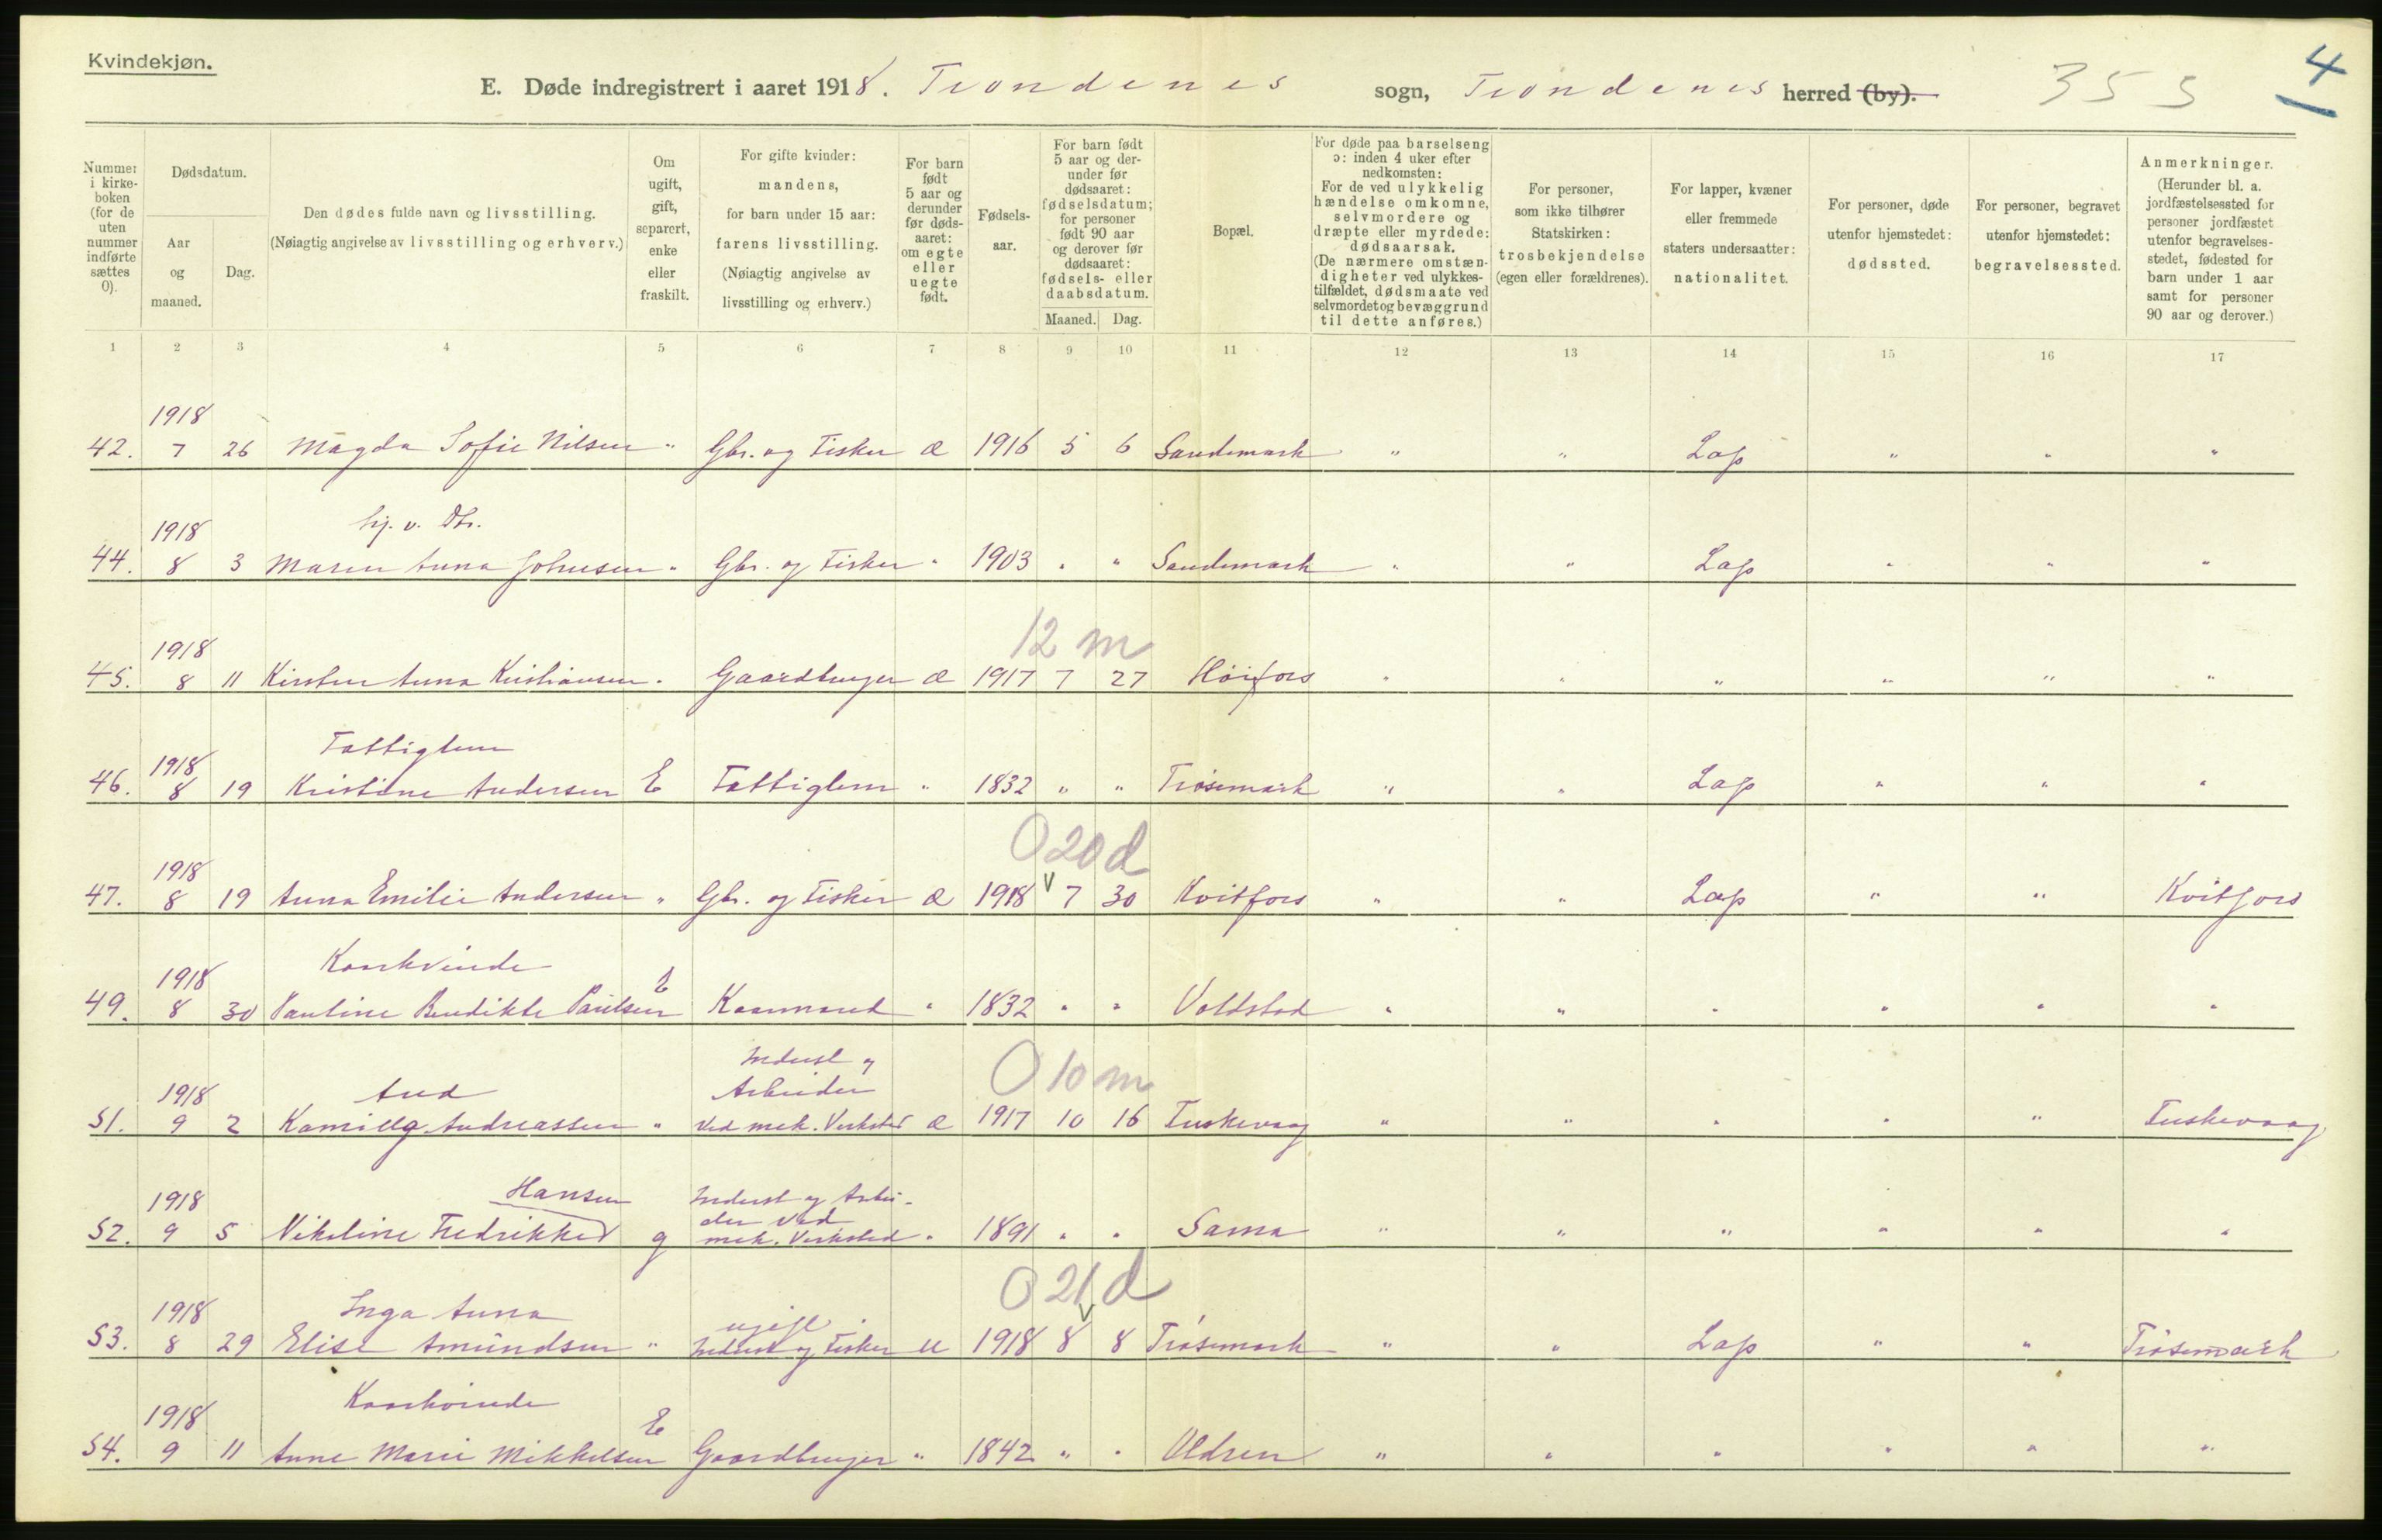 Kvindekjøn.
E. Døde indregistrert i aaret 1918. Trondenes sogn, Trondenes herred (by). 355 4
Nummer i kirkeboken (for de uten nummer indførte sættes 0).
Dødsdatum.
Aar og maaned.
Dag.
Den dødes fulde navn og livsstilling.
(Nøiagtig angivelse av livsstilling og erhverv.)
Om ugift, gift, separert, enke eller fraskilt.
For gifte kvinder: mandens, for barn under 15 aar: farens livsstilling. (Nøiagtig angivelse av livsstilling og erhverv.)
For barn født 5 aar og derunder før dødsaaret: om egte eller uegte født.
Fødselsaar.
For barn født 5 aar og derunder før dødsaaret: fødselsdatum; for personer født 90 aar og derover før dødsaaret: fødsels- eller daabsdatum.
Maaned. Dag.
Bopæl.
For døde paa barselseng ɔ: inden 4 uker efter nedkomsten: For de ved ulykkelig hændelse omkomne, selvmordere og dræpte eller myrdede: dødsaarsak. (De nærmere omstændigheter ved ulykkestilfældet, dødsmaate ved selvmordet og bevæggrund til dette anføres.)
For personer, som ikke tilhører Statskirken: trosbekjendelse (egen eller forældrenes).
For lapper, kvæner eller fremmede staters undersaatter: nationalitet.
For personer, døde utenfor hjemstedet: dødssted.
For personer, begravet utenfor hjemstedet: begravelsessted.
Anmerkninger. (Herunder bl. a. jordfæstelsessted for personer jordfæstet utenfor begravelsesstedet, fødested for barn under 1 aar samt for personer 90 aar og derover.)
1 2 3 4 5 6 7 8 9 10 11 12 13 14 15 16 17
1918
42. 7 26 Magda Sofie Nilsen " Gbr. og Fisker Æ 1916 5 6 Sandemark " " Lap " " "
1918 hj. v. Dtr.
44. 8 3 Maren Anna Johnsen " Gbr. og Fisker " 1903 " " Sandemark " " Lap " " "
1918 12 m
45. 8 11 Kirsten Anna Kristiansen " Gaardbruger Æ 1917 7 27 Høifors " " " " " "
1918 Fattiglem
46. 8 19 Kristine Andersen E Fattiglem " 1832 " " Trøsemark " " Lap " " "
1918 0 20 d
47. 8 19 Anna Emilie Andersen " Gbr. og Fisker Æ 1918 7 30 Kvitfors " " Lap " " Kvitfors
1918 Kaarkvinde
49. 8 30 Pauline Bendikte Paulsen E Kaarmand " 1832 " " Voldstad " " " " " "
1918 Aud Inderst og Arbeider 0 10 m
51. 9 2 Kamilla Andreassen " ved mek. Verksted Æ 1917 10 16 Fuskevaag " " " " " Fuskevaag
1918 Hansen Inderst og Arbeider ved
52. 9 5 Nikoline Fredrikke g mek. Verksted " 1891 " " Sama " " " " " "
1918 Inga Anna ugift 0 21 d
53. 8 29 Elise Amundsen " Inderst og Fisker U 1918 8 8 Trøsemark " " Lap " " Trøsemark
1918 Kaarkvinde
54. 9 11 Anne Marie Mikkelsen E Gaardbruger " 1842 " " Aldren " " " " " "